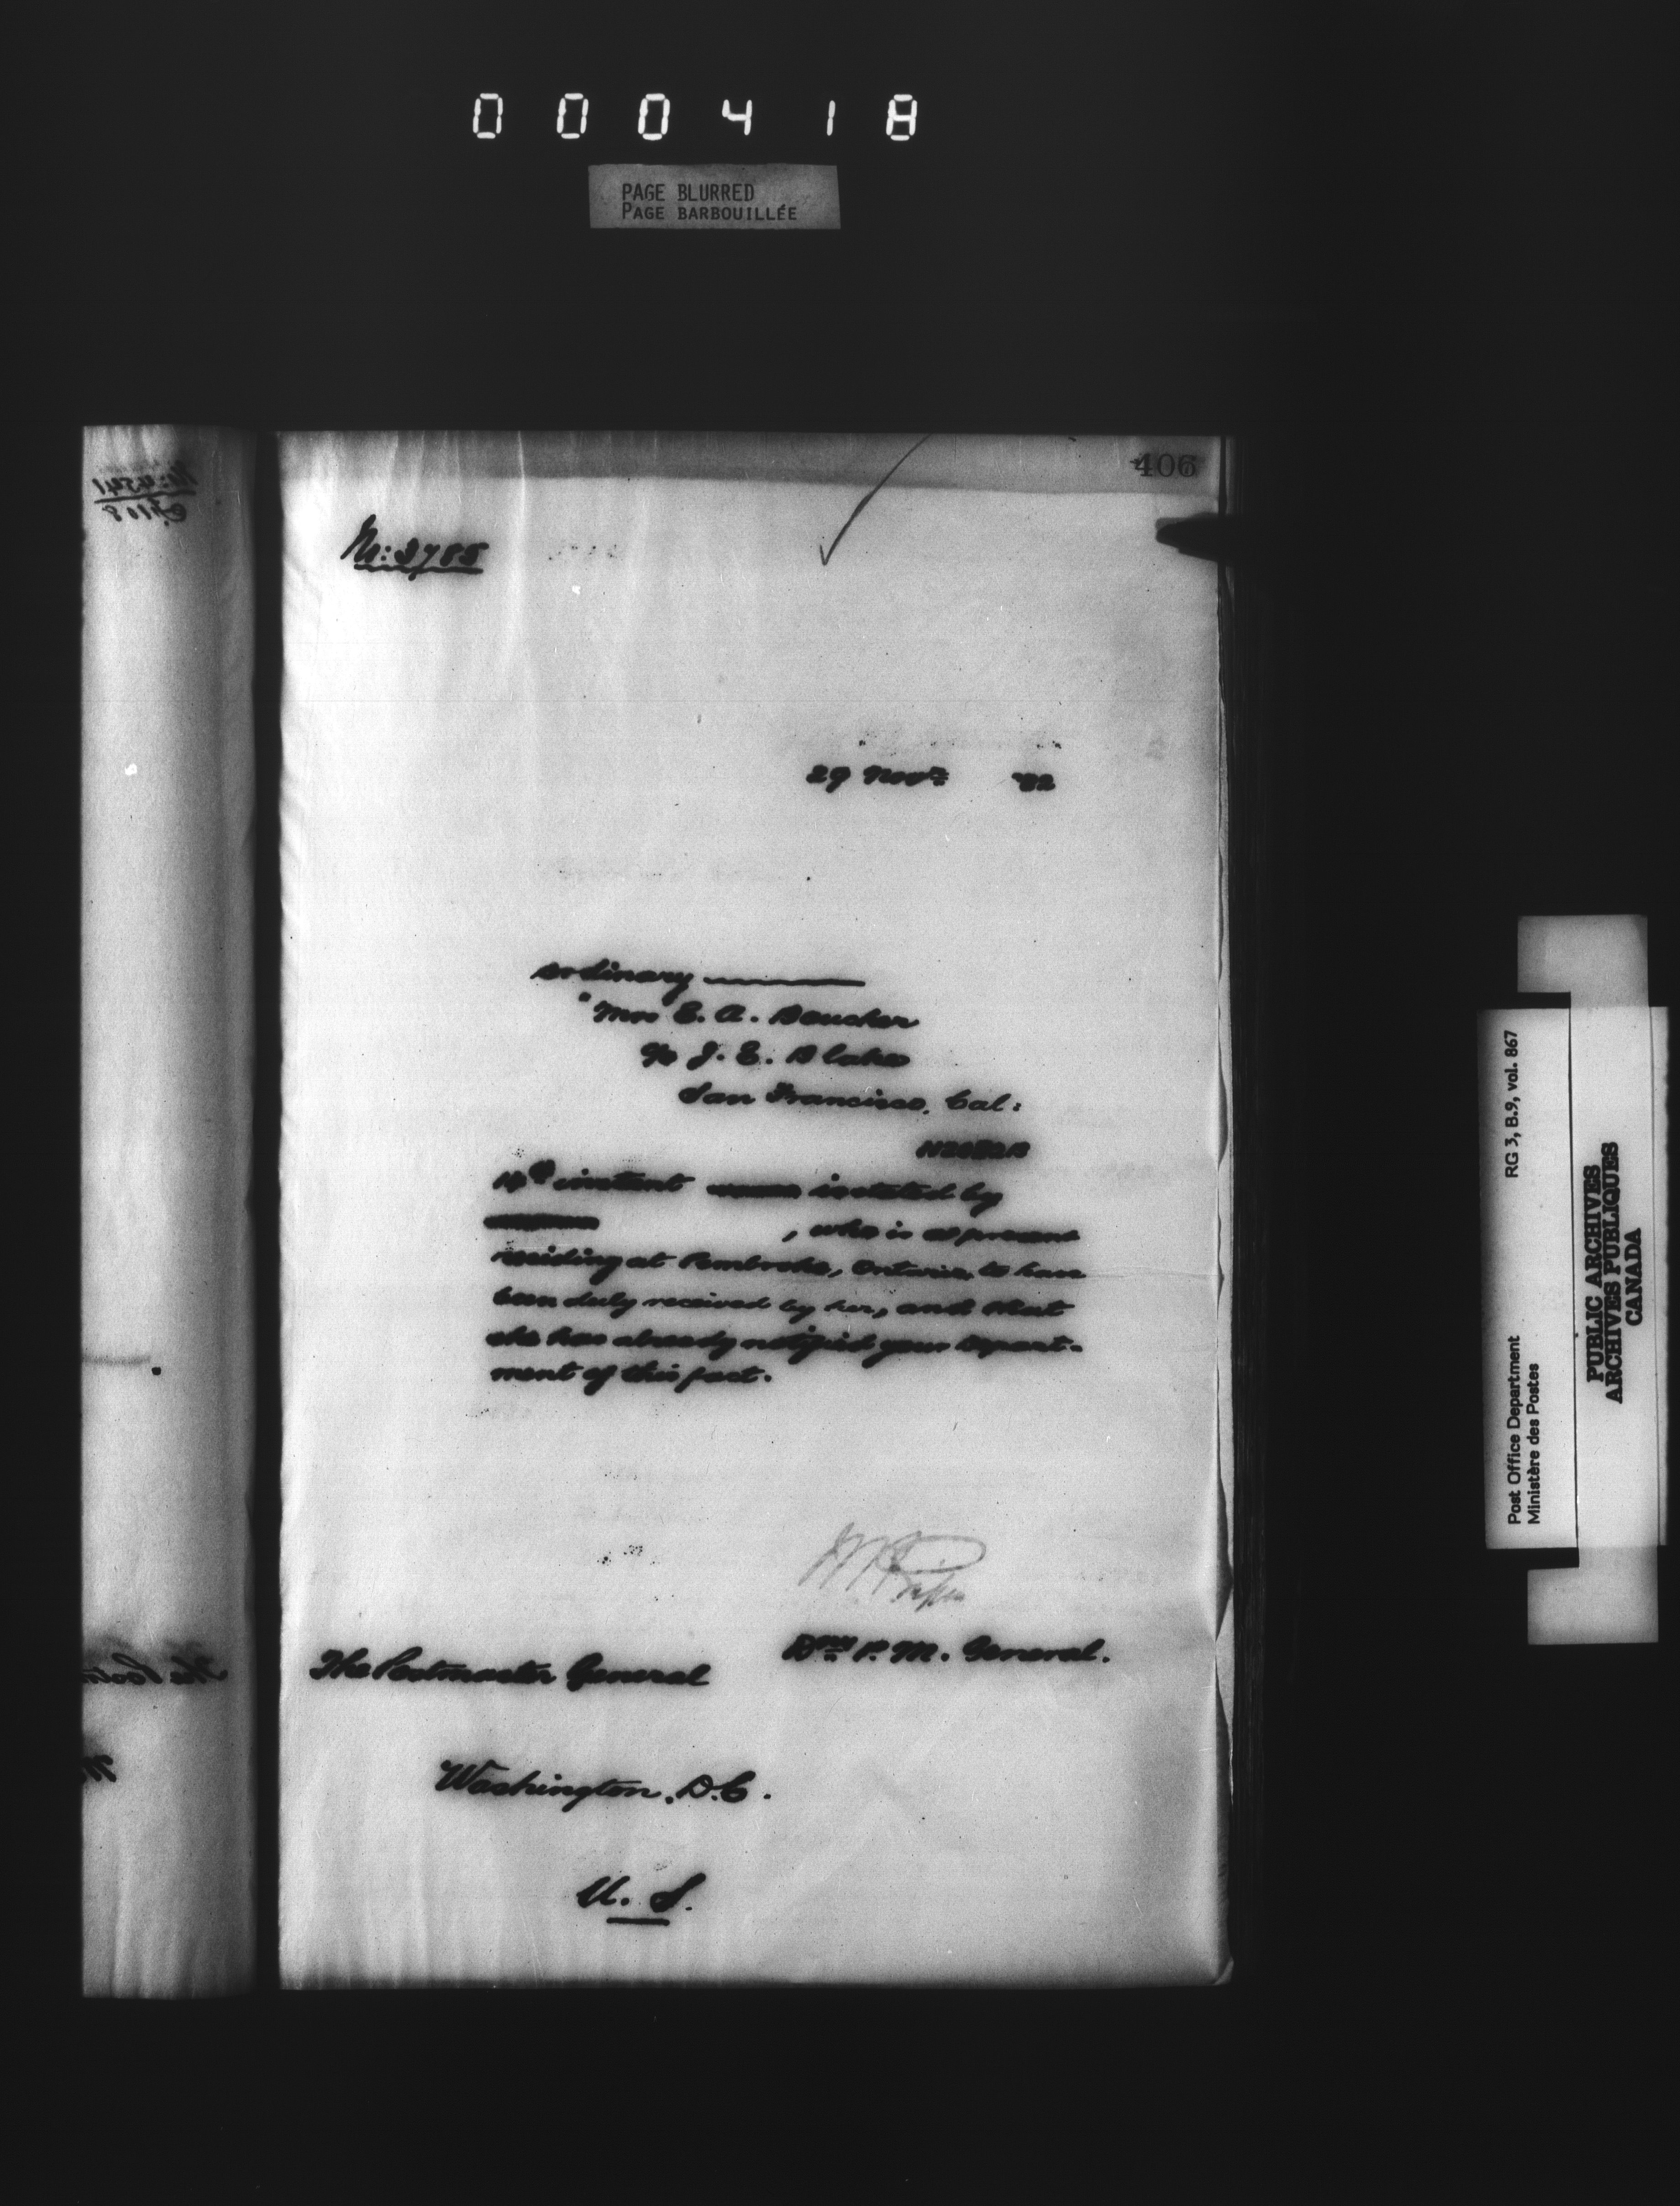 000418
PAGE BLURRED
PAGE BARBOUILLÉE
406
N: 3785
29 Novr '92
ordinary
"Mrs E. A. Boucher
c/o J. E. Blake
San Francisco, Cal:
14th instant is stated by
, who is at present
residing at Pembroke, Ontario, to have
been duly received by her, and that
she has already notified your Depart-
ment of this fact.
Dpy P. M. General.
The Postmaster General
Washington, D.C.
U. S.
Post Office Department
Ministère des Postes
RG 3, B.9, vol. 867
PUBLIC ARCHIVES
ARCHIVES PUBLIQUES
CANADA